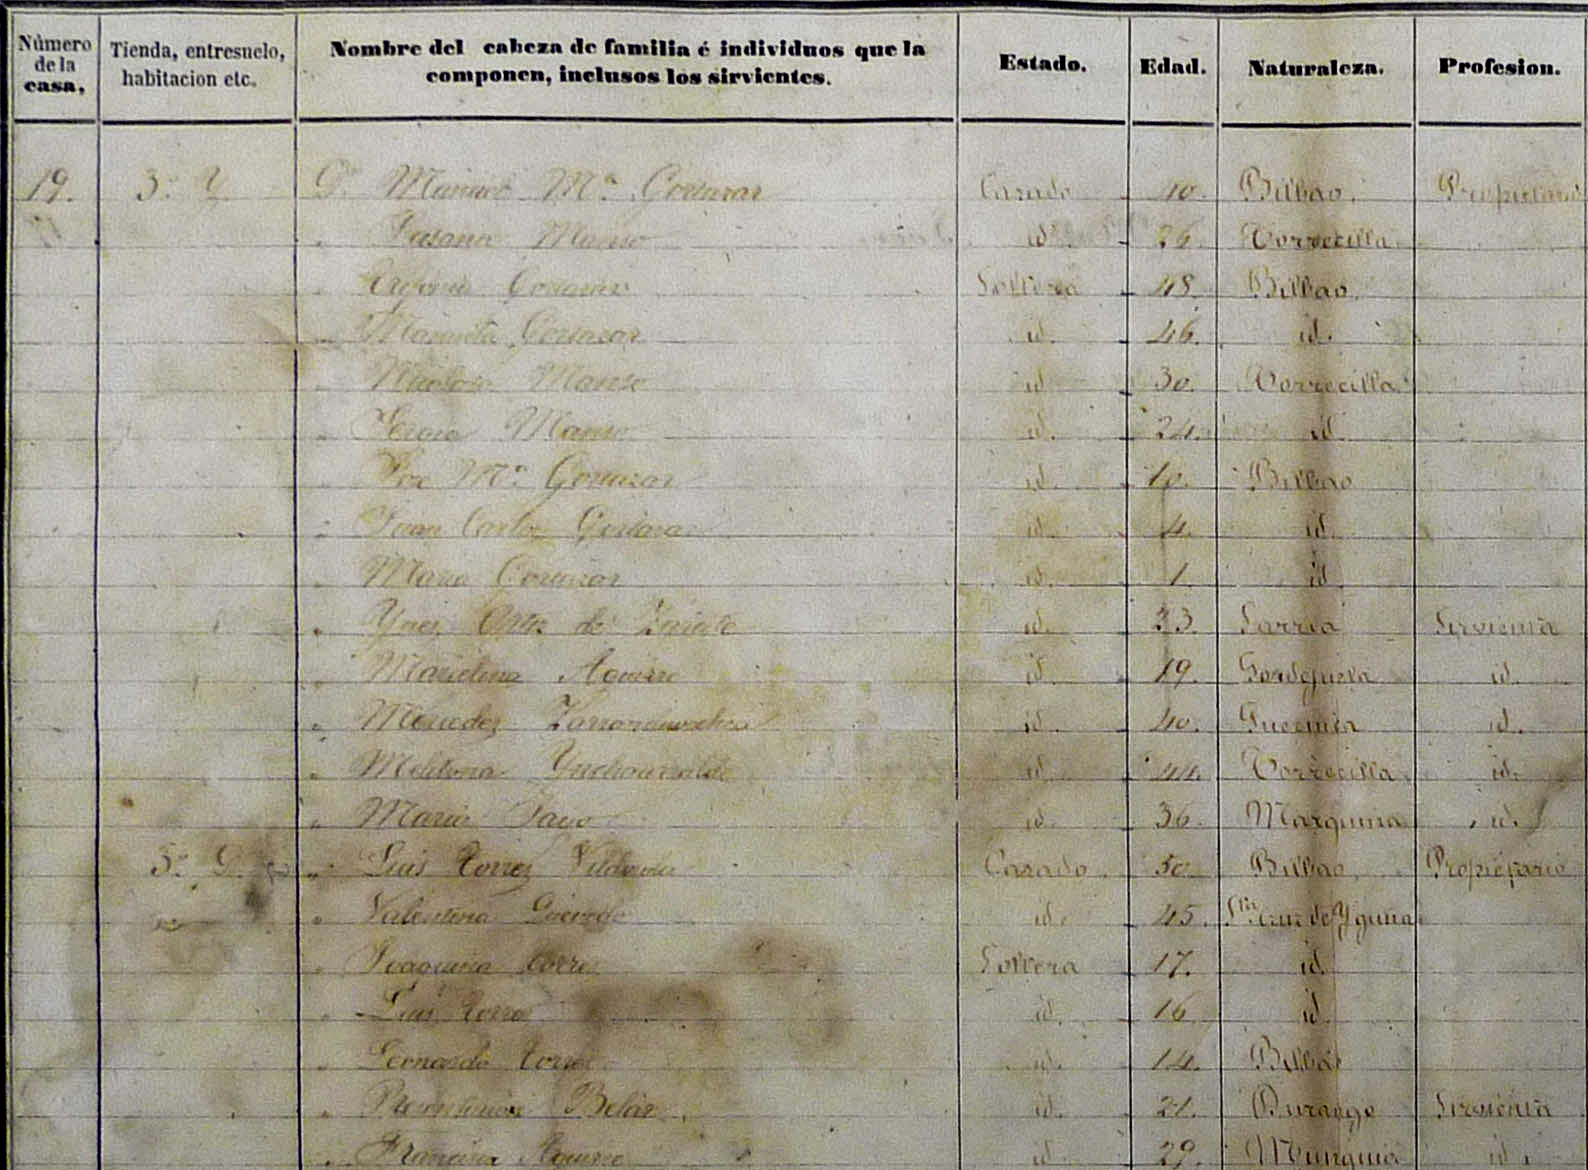 Número de la casa, Tienda, entresuelo, habitacion etc. Nombre del cabeza de familia é individuos que la componen, inclusos los sirvientes. Estado. Edad. Naturaleza. Profesion.
19. 3º Y. Dn Manuel Mª Gortazar Casado 40. Bilbao. Propietario
" Susana Manso id. 26. Torrecilla
" Gortazar Soltera 48. Bilbao.
" Gortazar id. 46. id.
" Manso id 30. Torrecilla
" Manso id. 24. id.
" Mª Gortazar id. 10. Bilbao
" Juan Carlos Gortazar id. 4. id.
" Maria Gortazar id. 1. id
" Ynes Ortz. de Zarate id. 33. Sarria Sirvienta
" Marcelina Aguirre id. 19. Gordejuela id.
" Mercedes id. 40. id.
" Melitona id. 44. Torrecilla id.
" Maria id. 36. Marquina id.
3º D. " Luis Torres Vildosola Casado. 50. Bilbao. Propietario
" Valentina Quevedo id. 45. Sta. Cruz de Yguña
" Joaquina Torres Soltera 17. id
" Luis Torres id. 16 id.
" Torres id. 14. Bilbao
" id. 21. Durango Sirvienta
" Francisca Aguirre id 29. Munguia id.